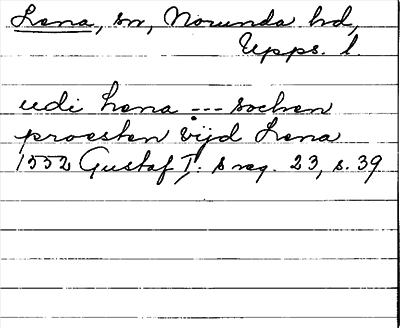 Lena, sn, Norunda hd,
Upps. l.
udi Lena --- sochen
proesten vijd Lena
1552 Gustaf I. s reg. 23, s. 39